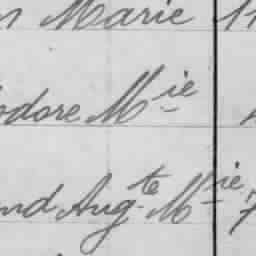 Marie 11
odore Mie
nd Augte Mie 7